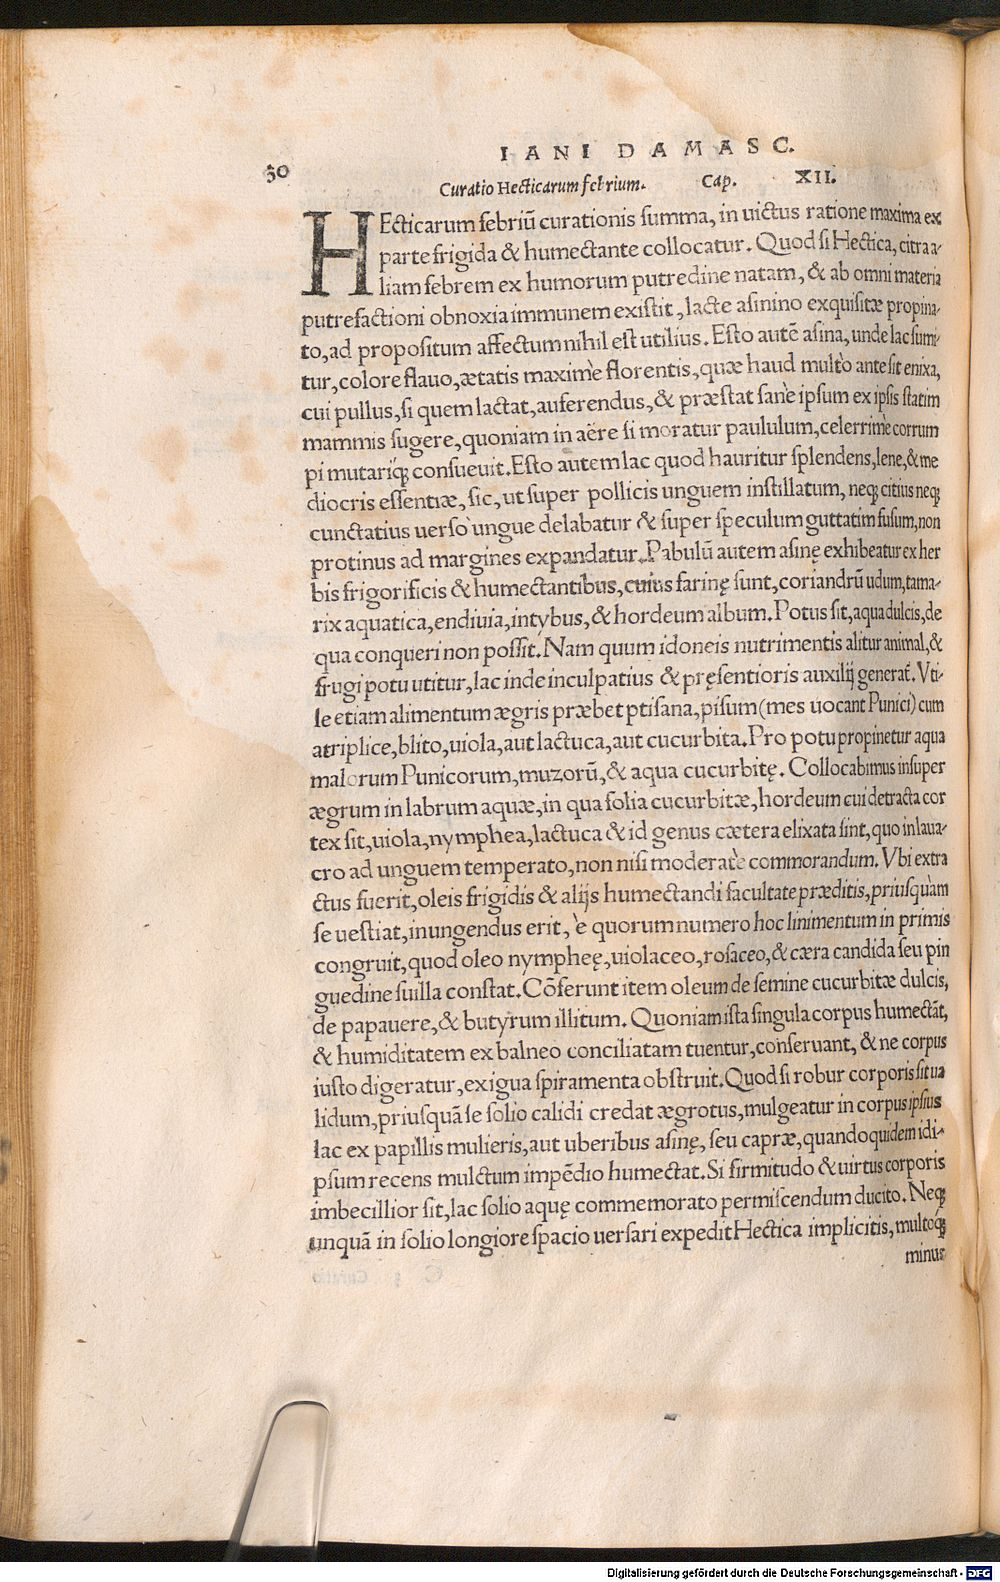 30
IANI DAMASC.
Curatio Hecticarum febrium. Cap. XII.
HEcticarum febriũ curationis summa, in uictus ratione maxima ex
parte frigida & humectante collocatur. Quod si Hectica, citra a-
liam febrem ex humorum putredine natam, & ab omni materia
putrefactioni obnoxia immunem existit, lacte asinino exquisitæ propina-
to, ad propositum affectum nihil est utilius. Esto autẽ asina, unde lac sumi-
tur, colore flauo, ætatis maximè florentis, quæ haud multò ante sit enixa,
cui pullus, si quem lactat, auferendus, & præstat sanè ipsum ex ipsis statim
mammis sugere, quoniam in aëre si moratur paululum, celerrimè corrum
pi mutariq́ꝫ consueuit. Esto autem lac quod hauritur splendens, lene, & me
diocris essentiæ, sic, ut super pollicis unguem instillatum, neqꝫ citius neqꝫ
cunctatius uerso ungue delabatur & super speculum guttatim fusum, non
protinus ad margines expandatur. Pabulũ autem asinę exhibeatur ex her
bis frigorificis & humectantibus, cuius farinę sunt, coriandrũ udum, tama-
rix aquatica, endiuia, intybus, & hordeum album. Potus sit, aqua dulcis, de
qua conqueri non possit. Nam quum idoneis nutrimentis alitur animal, &
frugi potu utitur, lac inde inculpatius & pręsentioris auxilij generat̃. Vti-
le etiam alimentum ægris præbet ptisana, pisum (mes uocant Punici) cum
atriplice, blito, uiola, aut lactuca, aut cucurbita. Pro potu propinetur aqua
malorum Punicorum, muzorũ, & aqua cucurbitę. Collocabimus insuper
ægrum in labrum aquæ, in qua folia cucurbitæ, hordeum cui detracta cor
tex sit, uiola, nymphea, lactuca & id genus cætera elixata sint, quo in laua-
cro ad unguem temperato, non nisi moderatè commorandum. Vbi extra
ctus fuerit, oleis frigidis & alijs humectandi facultate præditis, priusquàm
se uestiat, inungendus erit, è quorum numero hoc linimentum in primis
congruit, quod oleo nympheę, uiolaceo, rosaceo, & cæra candida seu pin
guedine suilla constat. Cõferunt item oleum de semine cucurbitæ dulcis,
de papauere, & butyrum illitum. Quoniam ista singula corpus humectãt,
& humiditatem ex balneo conciliatam tuentur, conseruant, & ne corpus
iusto digeratur, exigua spiramenta obstruit. Quod si robur corporis sit ua
lidum, priusquã se solio calidi credat ægrotus, mulgeatur in corpus ipsius
lac ex papillis mulieris, aut uberibus asinę, seu capræ, quandoquidem idi-
psum recens mulctum impẽdio humectat. Si firmitudo & uirtus corporis
imbecillior sit, lac solio aquę commemorato permiscendum ducito. Neqꝫ
unquã in solio longiore spacio uersari expedit Hectica implicitis, multoq́ꝫ
minus
Digitalisierung gefördert durch die Deutsche Forschungsgemeinschaft - DFG